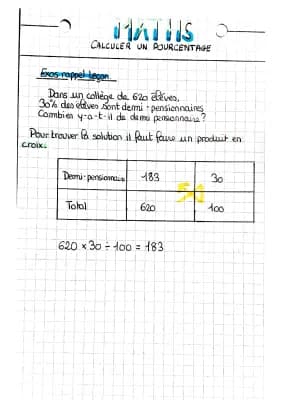 MATHS
CALCULER UN POURCENTAGE
Exos rappel leçon
Dans un collège de 620 élèves,
30% des élèves sont demi-pensionnaires
Combien y-a-t-il de demi pensionnaire?
Pour trouver la solution il faut faire un produit en
croix:
Demi-pensionnaire 183 30
Total 620 100
620 × 30 ÷ 100 = 183